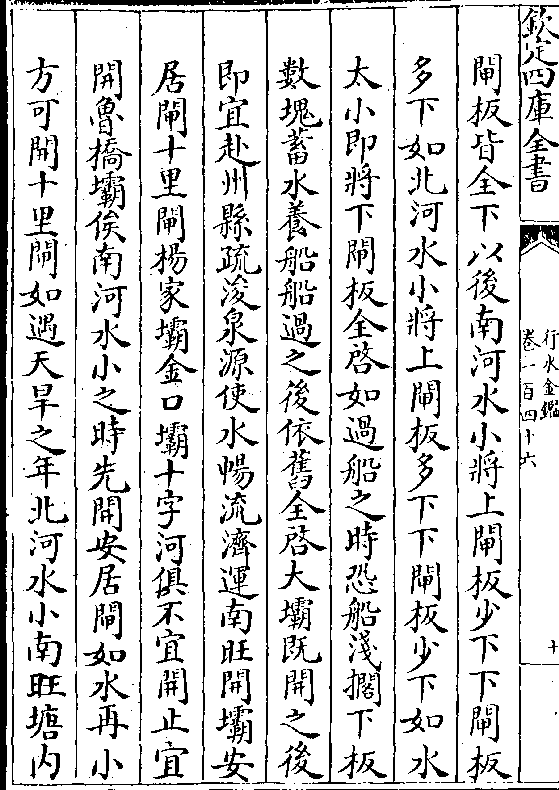 欽定四庫全書
行水金鑑
卷一百四十六
十
閘板皆全下以後南河水小將上閘板少下下閘板
多下如北河水小將上閘板多下下閘板少下如水
太小即將下閘板全啓如過船之時恐船淺擱下板
數塊蓄水養船船過之後依舊全啓大壩既開之後
即宜赴州縣疏浚泉源使水暢流濟運南旺開壩安
居閘十里閘楊家壩金口壩十字河俱不宜開止宜
開魯橋壩俟南河水小之時先開安居閘如水再小
方可開十里閘如遇天旱之年北河水小南旺塘内